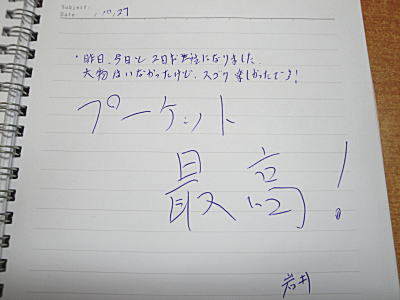 Subject:
Date . 10/27
・昨日、今日と2日お世話になりました。
大物はいなかったけど、スゴク楽しかったでーす!
プーケット
最高!
岩井